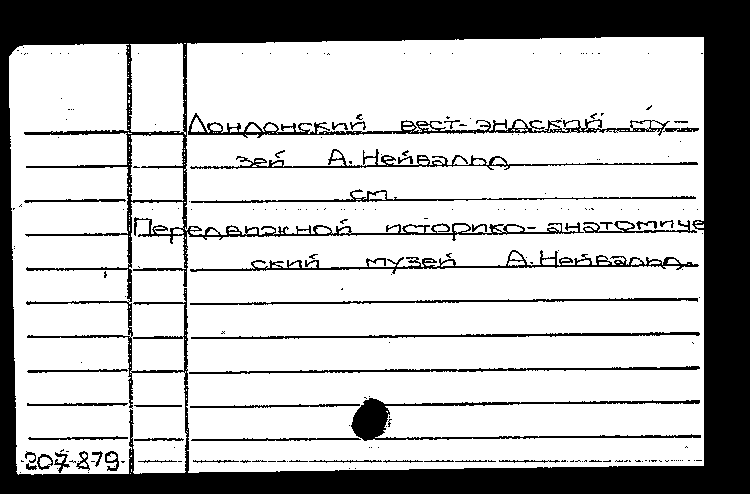 Лондонский вест-эндский му-
зей А. Нейвальд
см.
Передвижной историко-анатомиче
ский музей А. Нейвальд.
207-879